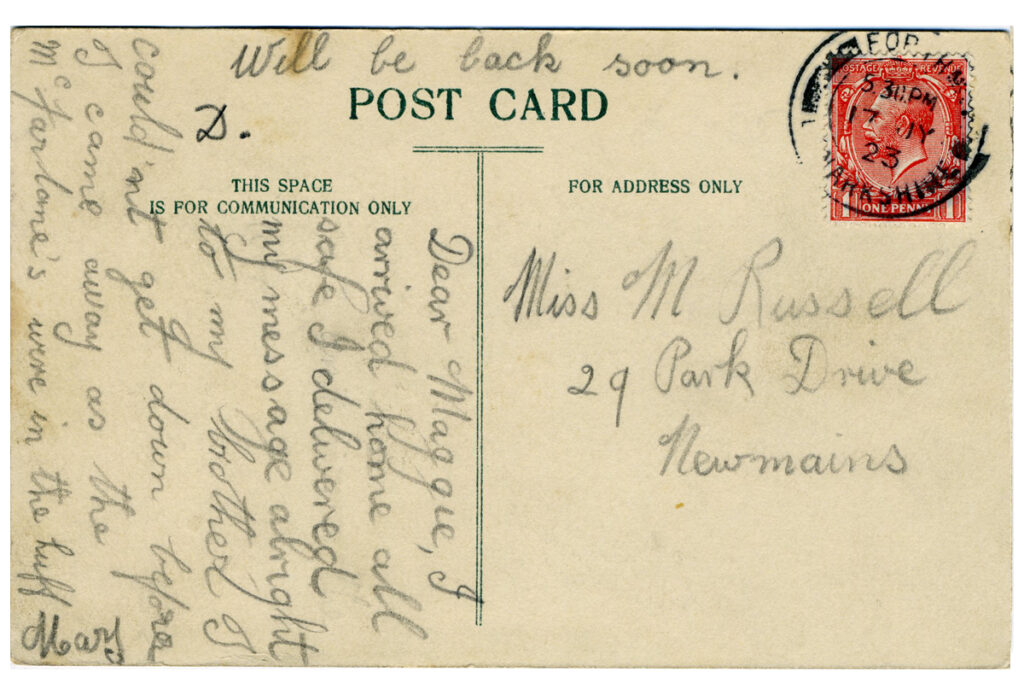 Will be back soon.
D.
POST CARD
THIS SPACE
IS FOR COMMUNICATION ONLY
Dear Maggie, I
arrived home all
safe I delivered
my message alright
to my brother I
could'nt get down before
I came away as the
McFarlane's were in the huff
Mary
FOR ADDRESS ONLY
Miss M Russell
29 Park Drive
Newmains
POSTAGE REVENUE
ONE PENNY
1 1
5.30 PM
17 MY
23